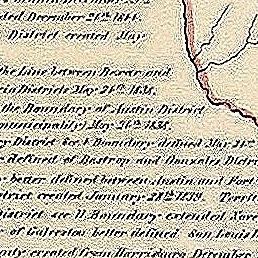 ded December 24th 1834.
District created May
the line between Bexar and
xin Districts May 24th 1838.
the Boundary of Austin District
municipality) May 24th 1838.
y District see N Boundary defined May 24th
e defined of Bastrop and Gonzales Distric
better defined between Austin and Fort
strict created January 28th 1839. Territo
District see N. Boundary extended Nove
of Galveston better defined San Louis I
nty created from Harrisburg December